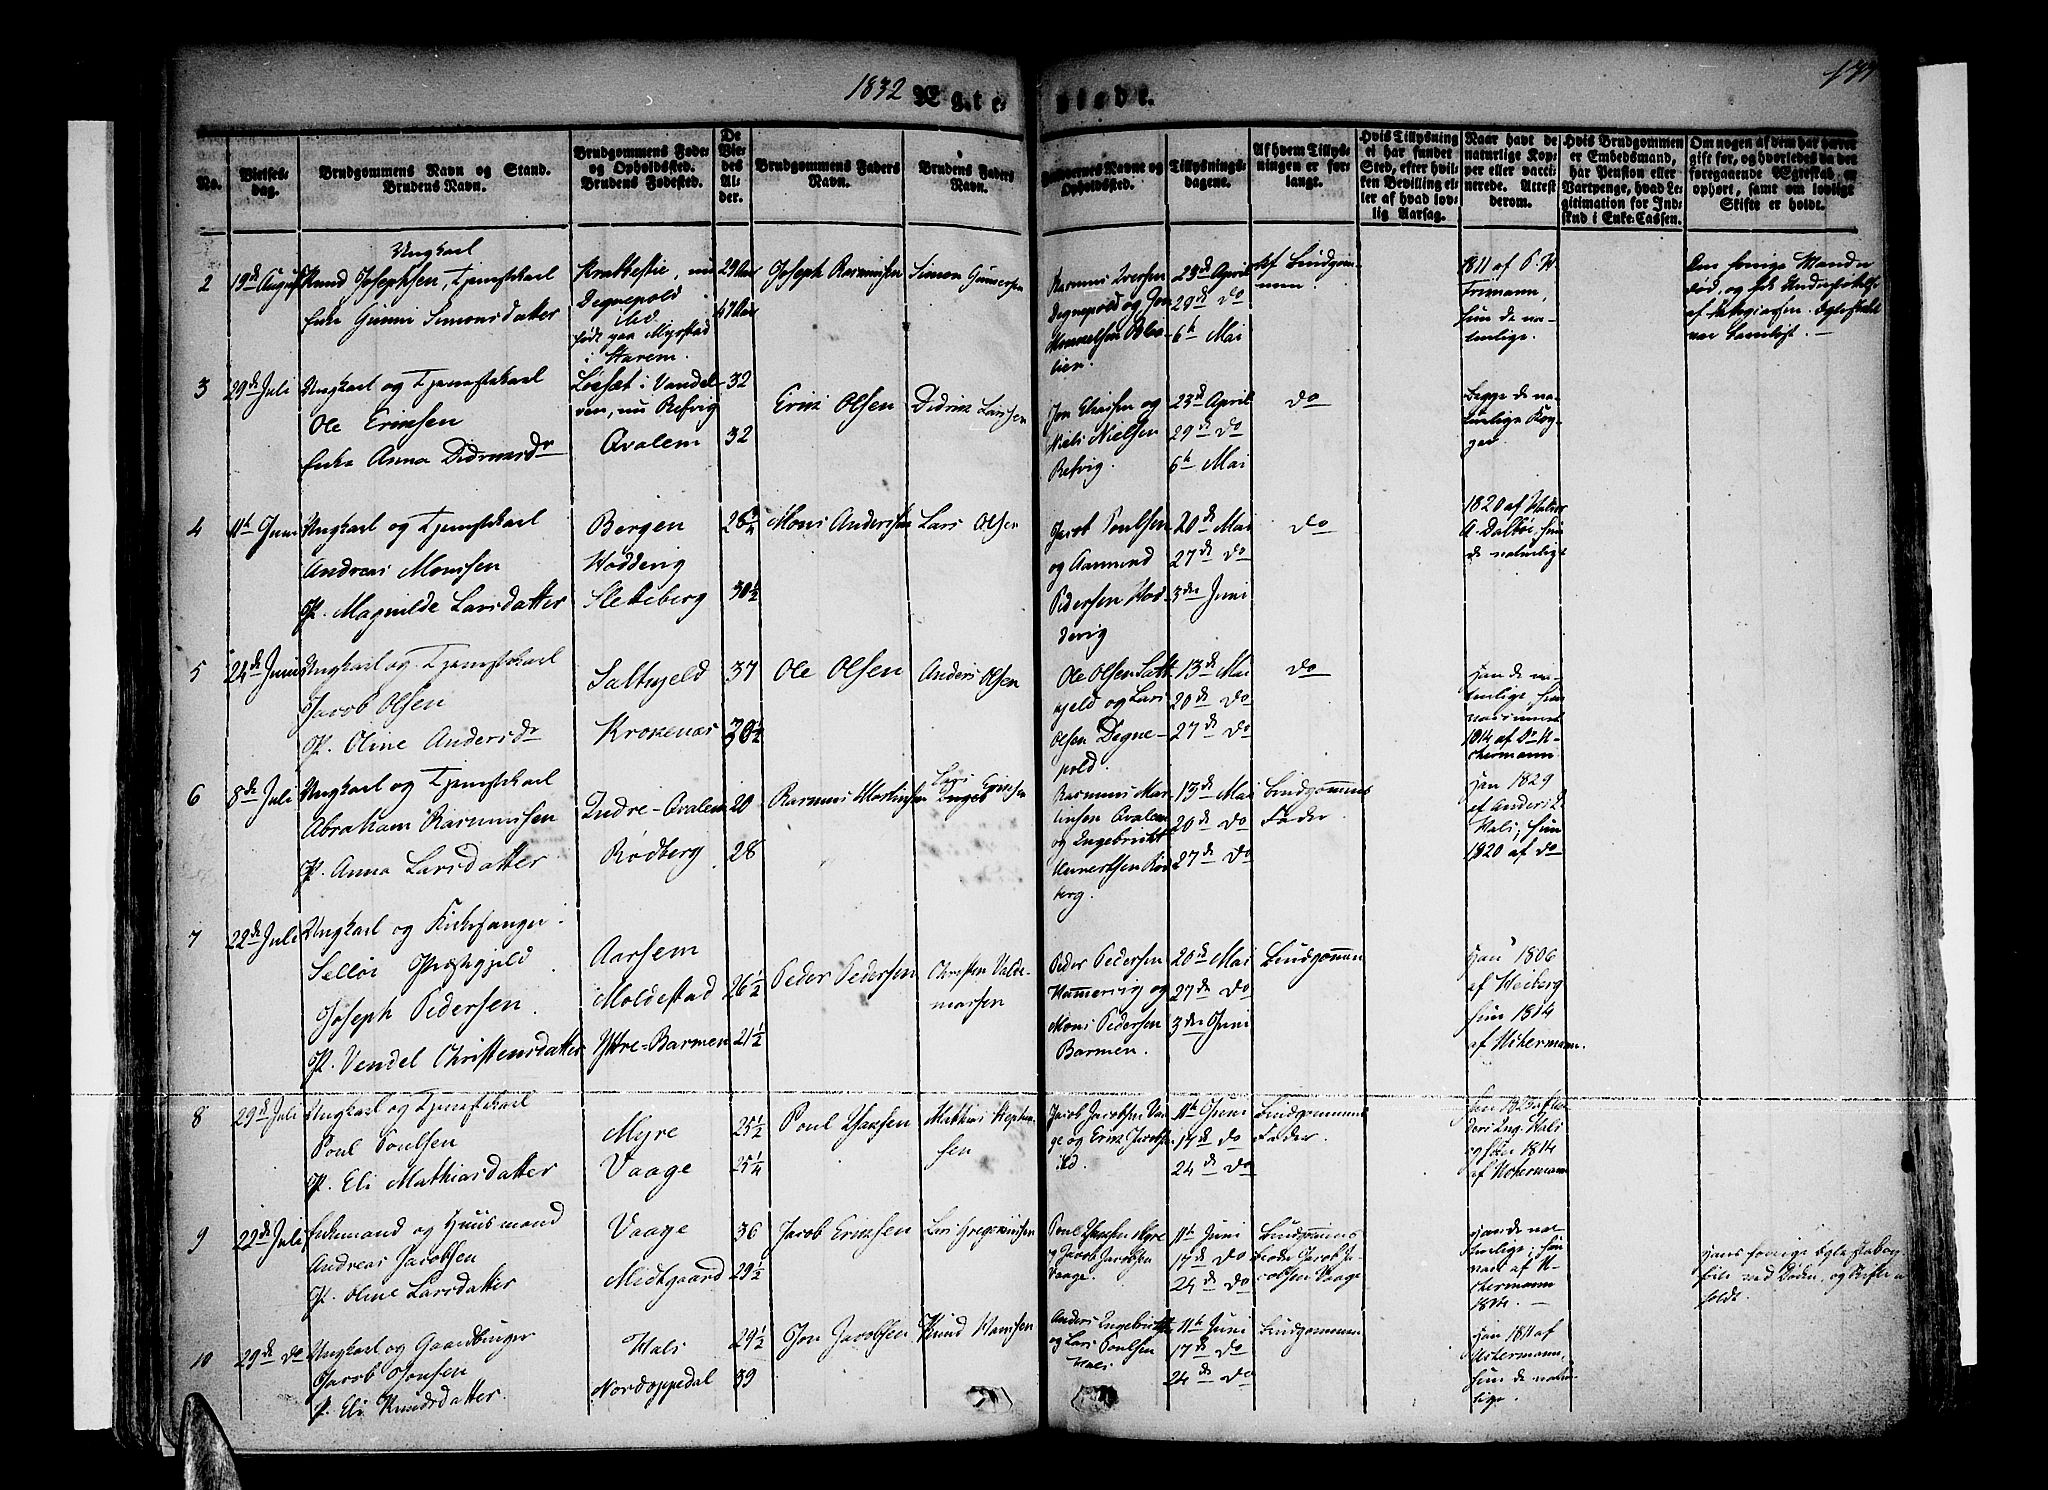 1832 Ægte stade.
177
No.
Vielses-
dag.
Brudgommens Navn og Stand.
Brudens Navn.
Brudgommens Føde-
og Opholdssted.
Brudens Fødested.
De
Vie-
des
Al-
der.
Brudgommens Faders
Navn.
Brudens Faders
Navn.
Navne og
Opholdssted.
Tillysnings-
dagene.
Af hvem Tillys-
ningen er for-
langt.
Hvis Tillysning
ei har fundet
Sted, efter hvil-
ken Bevilling el-
ler af hvad lov-
lig Aarsag.
Naar havt de
naturlige Kop-
per eller vacci-
nerede. Attest
derom.
Hvis Brudgommen
er Embedsmand,
har Pension eller
Vartpenge, hvad Le-
gitimation for Ind-
skud i Enke-Cassen.
Om nogen af dem har været
gift før, og hvorledes da det
foregaaende Ægteskab er
ophørt, samt om lovligt
Skifte er holdt.
2
19de August
Ungkarl
Knud Josephsen, Tjenestekarl
Enke Gunni Simonsdatter
Krakkestie, nu
Degnepold
ibd.
født paa Myrstad
i Harem.
29 Aar
47 Aar
Joseph Rasmussen
Simon Gunnersen
Rasmus Iversen
Degnepold og Jon
lien.
23de April
29de do
6te Mai
Af Brudgom-
men.
1811 af P. W.
Fremann,
hun de na-
turlige.
3
29de Juli
Ungkarl og Tjenestekarl
Ole Ericksen
Enke Anna Didriksdr
Løset i Vandel-
ven, nu Refvig
Qvalem
32
32
Erik Olsen
Didrik Larsen
Jon Eliassen og
Niels Nielsen
Refvig.
23de April
29de do
6te Mai
do
Begge de na-
turlige Kop-
per
4
11te Juni
Ungkarl og Tjenestekarl
Andreas Monssen
P. Magnilde Larsdatter
Bergen
Hodderig
Sletteberg
26 3/4
30 1/2
Mons Andersen
Lars Olsen
Jacob Poulsen
og Aamund
Pedersen Hod-
derig
20de Mai
27de do
3die Juni
do
1820 af
A. Dalbøe, hun
de naturlige
5
24de Juni
Ungkarl og Tjenestekarl
Jacob Olsen
P. Oline Andersdr
Saltkjeld
Krokenæs
37
30 1/2
Ole Olsen
Anders Olsen
Ole Olsen Salt-
kjeld og Lars
Olsen Degne-
pold.
13de Mai
20de do
27de do
do
Han de na-
turlige, hun
vaccineret
1814 af Dr U-
chermann
6
8de Juli
Ungkarl og Tjenestekarl
Abraham Rasmussen
P. Anna Larsdatter
Indre-Qvalem
Rødberg
20
28
Rasmus Martinsen
Lars Ericksen
Rasmus Mar-
tinsen Qvalem
og Engebricht
Rød-
berg.
13de Mai
20de do
27de do
Brudgommens
Fader.
Han 1829
af Anders E.
Hals, hun
1820 af do
7
22de Juli
Ungkarl og Kirkesanger i
Selløe Præstegjeld
Joseph Pedersen
P. Vendel Christensdatter
Aarsem
Moldestad
Ytre-Barmen
26 1/2
21 1/2
Peder Pedersen
Christen Valde-
marsen
Peder Pedersen
Hammersvig og
Mons Pedersen
Barmen.
20de Mai
27de do
3die Juni
Brudgommen
Han 1806
af Heiberg
Hun 1814
af Uchermann.
8
29de Juli
Ungkarl og Tjenestekarl
Poul Poulsen
P. Eli Mathiasdatter
Myre
Vaage
25 1/2
25 1/4
Poul Isaksen
Mathias
sen
Jacob Jacobsen Vaa-
ge og Erik Jacobsen
ibd.
11te Juni
17de do
24de do
Brudgommens
Fader.
Han 1823 af An-
ders Eng. Hals
og hun 1814
af Uchermann
9
22de Juli
Enkemand og Huusmand
Andreas Jacobsen
P. Oline Larsdatter
Vaage
Midtgaard
36
29 1/2
Jacob Ericksen
Lars Gregoriussen
Poul Isaksen Myre
og Jacob Jacobsen
Vaage.
11te Juni
17de do
24de do
Brudgommens
Broder Jacob Ja-
cobsen Vaage
Han de na-
turlige, hun
vacc. af U-
chermann
1814.
Hans forrige Egteskab op-
hørte ved Døden, og Skifte er
holdt.
10
29de do
Ungkarl og Gaardbruger
Jacob Jonsen
P. Eli Knudsdatter
Hals
Nordoppedal
29 1/2
39
Jon Jacobsen
Knud Hansen
Anders Engebricht
og Lars Poulsen
Hals
11te Juni
17de do
24de do
Brudgommen
Han 1811 af
Uchermann,
hun de natur-
lige.